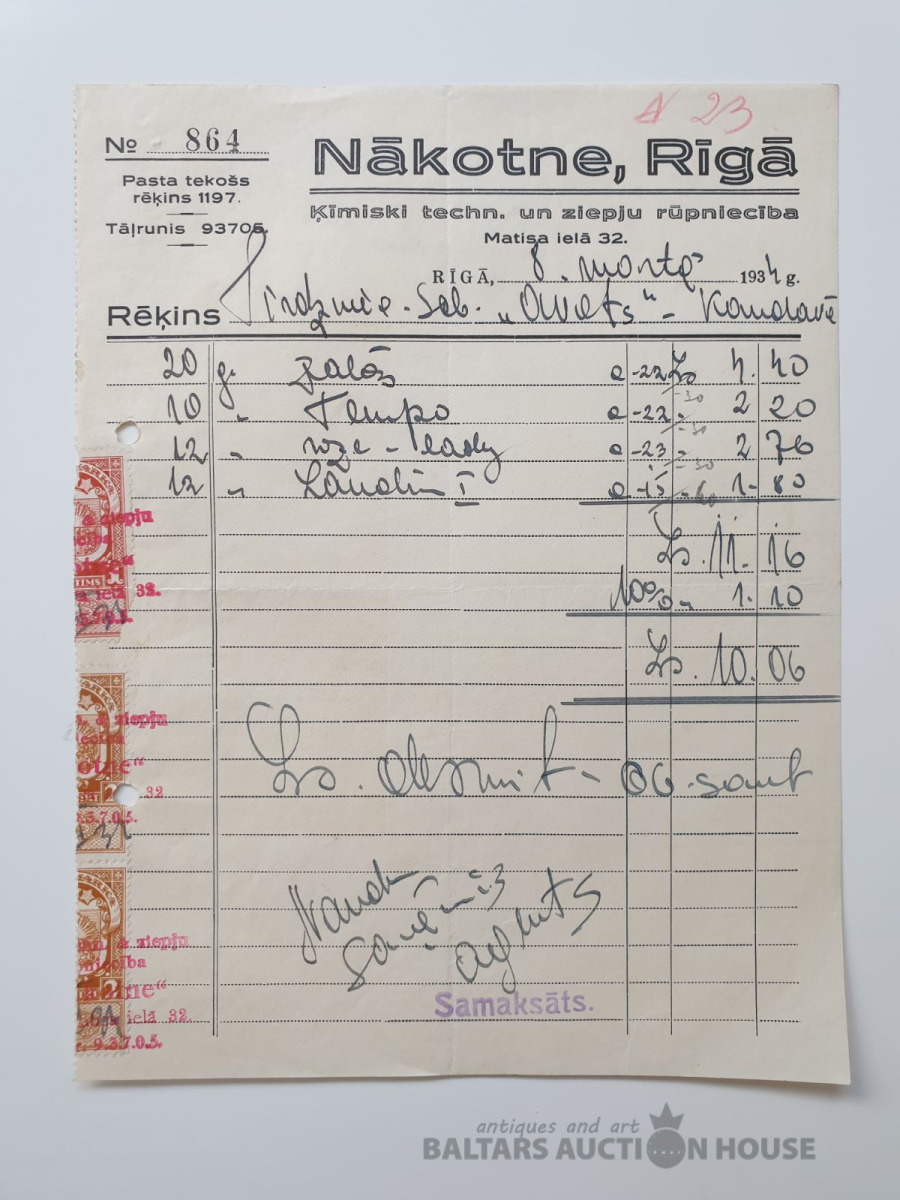 N 23
№ 864
Nākotne, Rīgā
Pasta tekošs
rēķins 1197.
Tāļrunis 93705.
Ķīmiski techn. un ziepju rūpniecība
Matisa ielā 32.
RĪGĀ, 8. martā 1934 g.
Rēķins Tirdznie. Sab. „Avots“ - Kandavē
20 g. a -22 Ls 4. 40
10 „ Tempo a -22 „ 2 20
12 „ roze - lady a -23 „ 2 76
12 „ I a -15 „ 1- 80
Ls. 11. 16
10% „ 1. 10
Ls. 10. 06
Ls. desmit - 06 sant
Naudu
saņēmis
agents
Samaksāts.
& ziepju
ielā 32.
& ziepju
32
.3.7.0.5.
& ziepju
niecība
ielā 32.
9.3.7.0.5.
antiques and art
BALTARS AUCTION HOUSE